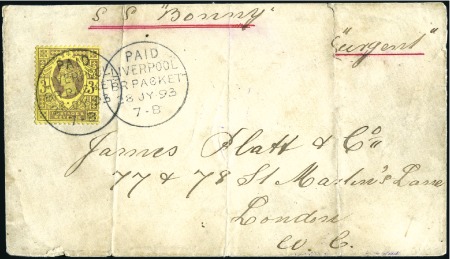 S S "Bonny"
"urgent"
PAID
LIVERPOOL
BR PACKET
8 JY 93
7-8
James Platt & Co
77 & 78 St Martin's Lane
London
W. C.